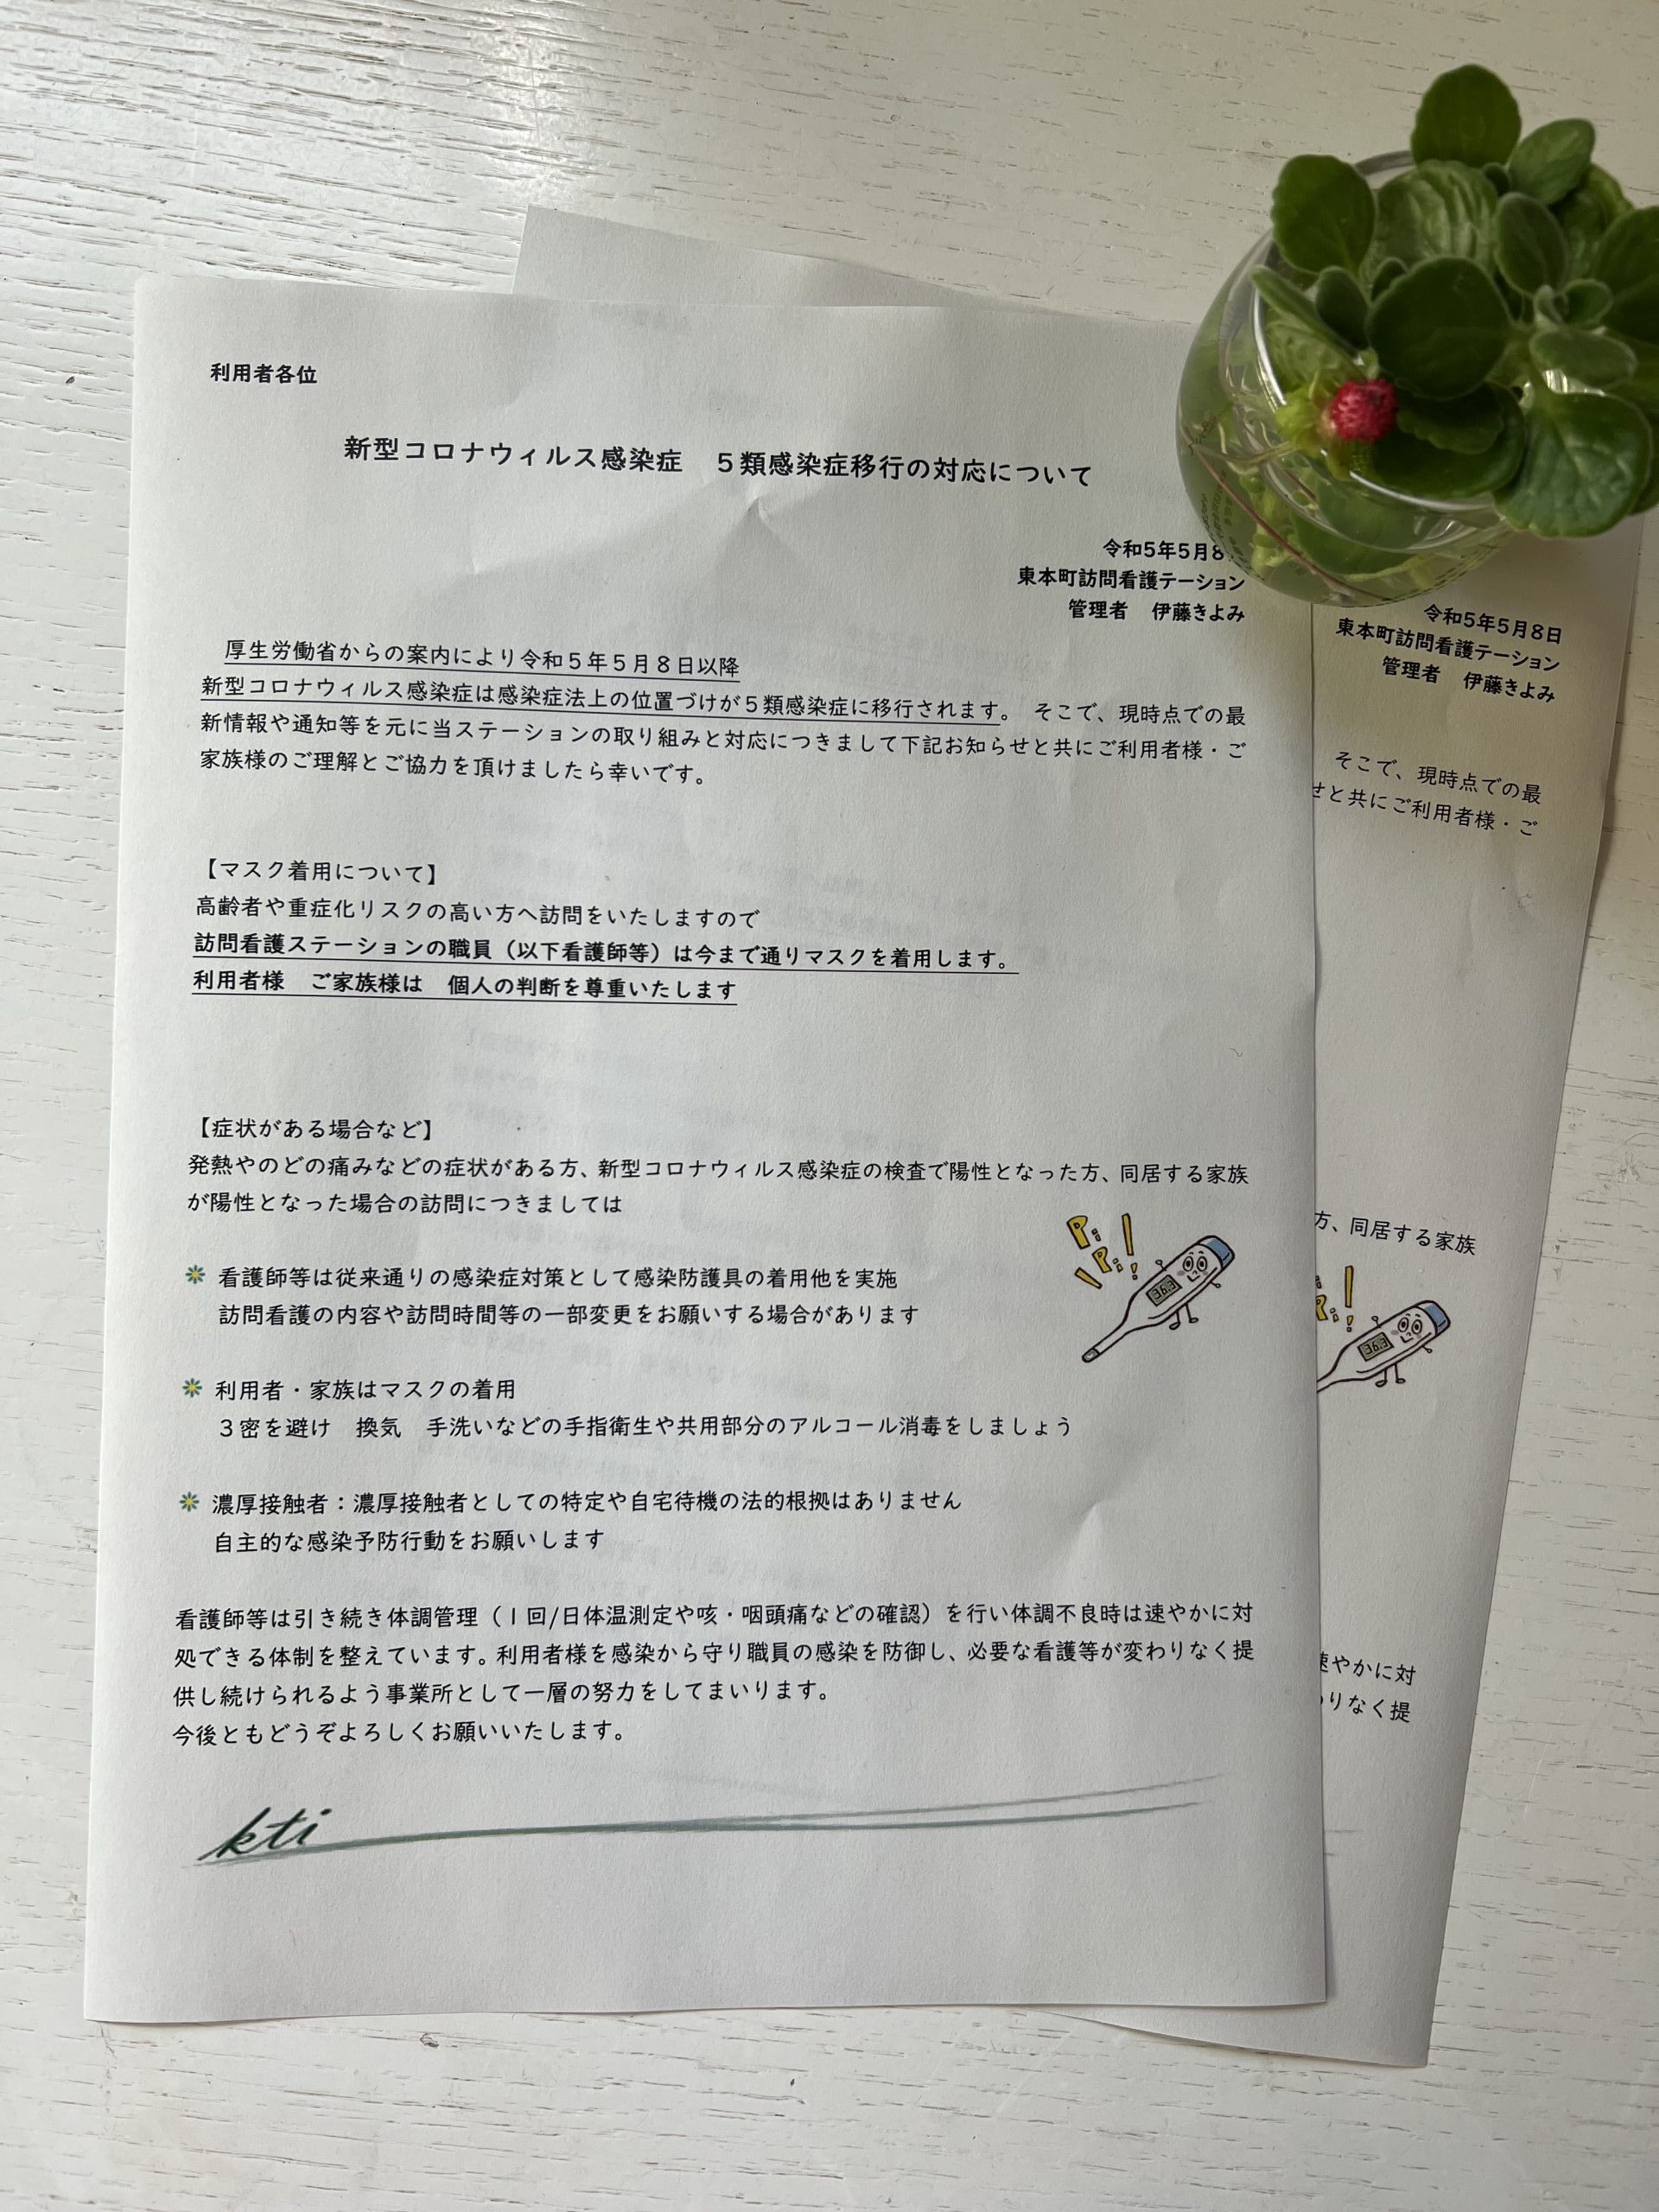 利用者各位
新型コロナウィルス感染症　５類感染症移行の対応について
令和5年5月8
東本町訪問看護テーション
管理者　伊藤きよみ
厚生労働省からの案内により令和５年５月８日以降
新型コロナウィルス感染症は感染症法上の位置づけが５類感染症に移行されます。　そこで、現時点での最
新情報や通知等を元に当ステーションの取り組みと対応につきまして下記お知らせと共にご利用者様・ご
家族様のご理解とご協力を頂けましたら幸いです。
【マスク着用について】
高齢者や重症化リスクの高い方へ訪問をいたしますので
訪問看護ステーションの職員（以下看護師等）は今まで通りマスクを着用します。
利用者様　ご家族様は　個人の判断を尊重いたします
【症状がある場合など】
発熱やのどの痛みなどの症状がある方、新型コロナウィルス感染症の検査で陽性となった方、同居する家族
が陽性となった場合の訪問につきましては
Pi Pi!!
36.3
看護師等は従来通りの感染症対策として感染防護具の着用他を実施
訪問看護の内容や訪問時間等の一部変更をお願いする場合があります
利用者・家族はマスクの着用
３密を避け　換気　手洗いなどの手指衛生や共用部分のアルコール消毒をしましょう
濃厚接触者：濃厚接触者としての特定や自宅待機の法的根拠はありません
自主的な感染予防行動をお願いします
看護師等は引き続き体調管理（１回/日体温測定や咳・咽頭痛などの確認）を行い体調不良時は速やかに対
処できる体制を整えています。利用者様を感染から守り職員の感染を防御し、必要な看護等が変わりなく提
供し続けられるよう事業所として一層の努力をしてまいります。
今後ともどうぞよろしくお願いいたします。
kti
令和5年5月8日
東本町訪問看護テーション
管理者　伊藤きよみ
そこで、現時点での最
せと共にご利用者様・ご
方、同居する家族
36.3
速やかに対
りなく提